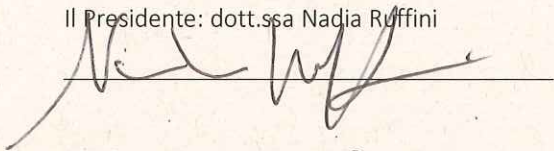 Il Presidente: dott.ssa Nadia Ruffini